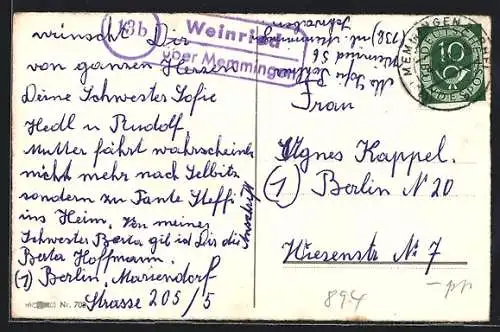 wünscht Dir
von ganzen Herzen
Deine Schwester Sofie
Hedl u Rudolf
Mutter fährt wahrscheinlich
nicht mehr nach Selbitz
sondern zu Tante Steffi
ins Heim. Von meiner
Schwester Berta gilt Dir die
Anschrift
Berta Hoffmann.
(1) Berlin, Mariendorf
Strasse 205/5
Nr. 70
(13b)
Weinried
über Memmingen
(13b)
Weinried 56
MEMMINGEN
DEUTSCHE
BUNDESPOST
10
Frau
Agnes Kappel.
(1) Berlin N 20
Wiesenstr № 7
894
-pp